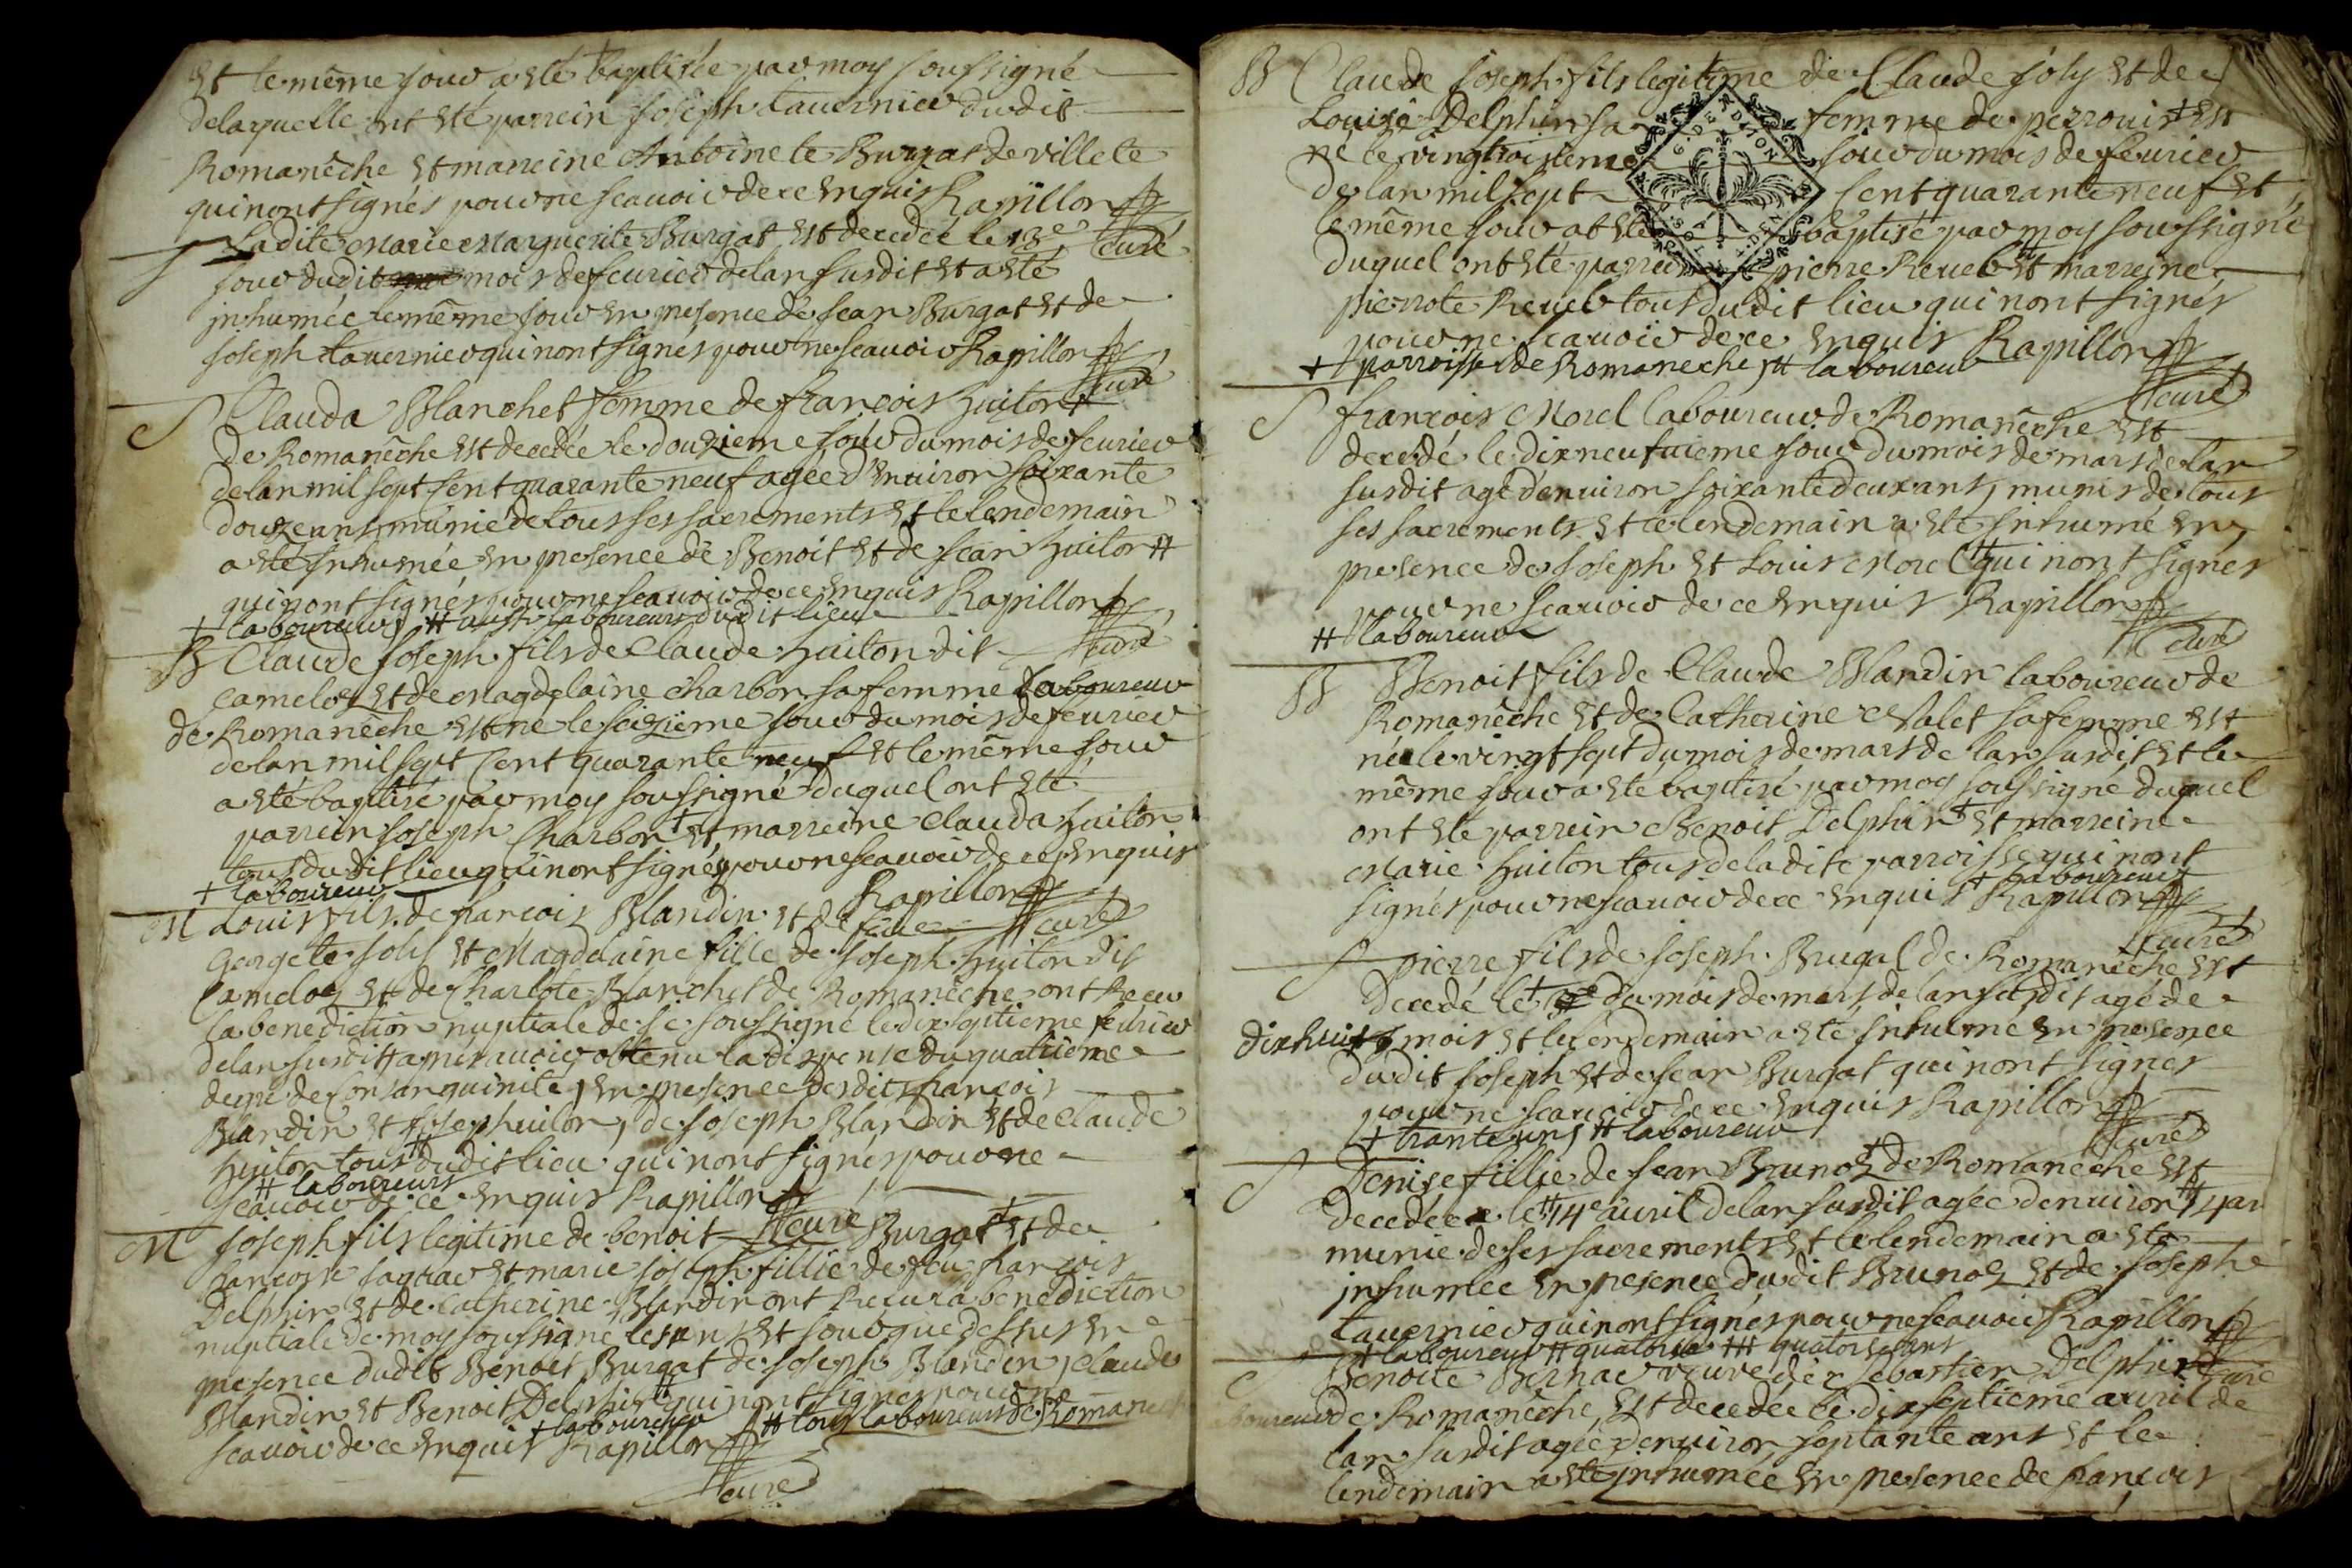 Et le même jour a esté baptisée par moy soussigné
delaquelle ont esté parrein Joseph tavernier dudit
Romanêche et marreine Antboinete Burgat de villete
qui nont signés pour ne scauoir de ce Enquis Rapillon
S Ladite Marie Marguerite Burgat Est decedée le 13e curé
jour dudit mois de feurier de lan susdit et a esté
jnhumée le même jour En presence de Jean Burgat et de
Joseph tavernier qui nont signés pour ne scauoir Rapillon
curé
S Clauda Blanchet femme de françois huiton +
de Romanêche est decedée le douzieme jour du mois de feurier
de lan mil sept Cent quarante neuf agée d'Enuiron soixante
douze ans, munie de tous ses sacrements et le lendemain
a esté jnhumée En presence de Benoit et de Jean huiton #
qui nont signés pour ne scauoir de ce Enquis Rapillon
+ laboureur, # aussi laboureurs dudit lieu
curé
B Claude Joseph fils de Claude huiton dit
camelos et de Magdelaine Charbon sa femme laboureur
de Romanêche est né le seizieme jour du mois de feurier
de lan mil sept Cent quarante neuf Et le même jour
a esté baptisé par moy soussigné duquel ont esté
parrein Joseph Charbon + et marreine clauda huiton
tous dudit lieu qui nont signés pour ne scauoir de ce Enquis
+ laboureur Rapillon
curé
M Louis fils de francois Blandin et de feüe
Georgete Joly et Magdelaine fille de Joseph huiton dit
Camelos et de Charlote Blanchet de Romanêche ont Receu
la benediction nuptiale de je soussigné le dix septieme feurier
de lan susdit apres auoir obtenu la dispense du quatrieme
degré de Consanguinité, En presence desdits françois
Blandin et Joseph huiton, de Joseph Blandin et de claude
huiton tous # dudit lieu qui nont signés pour ne
# laboureurs
scauoir de ce Enquis Rapillon
curé
M Joseph fils legitime de benoit Burgat + et de
francoise et marie joseph fillie de feu françois
Delphin et de Catherine Blandin ont Receu la benediction
nuptiale de moy soussigné les an et jour que dessus En
presence dudit Benoit Burgat de Joseph Blandin, claude
Blandin et Benoit Delphin # qui nont signés pour ne
+ laboureur # tous laboureurs de Romanech
scauoir de ce Enquis Rapillon
curé
B Claude Joseph fils legitime de Claude Joly et de
Louise Delphin sa femme de perrouis + est
né le vingtroisieme jour du mois de feurier
de lan mil sept Cent quarante neuf et
le même jour at esté baptisé par moy soussigné
GEN DIJON
duquel ont esté parrein pierre Reueb # et marreine
pierrote Reueb tous dudit lieu qui nont signés
pour ne scauoir de ce Enquis Rapillon
+ parroisse de Romaneche, # laboureur
curé
S françois Morel laboureur de Romanêche est
decedé le dixneufuieme jour du mois de mars de lan
susdit agé denuiron soixante deux ans, munis de tous
ses sacrements et le lendemain a esté jnhumé En
presence de Joseph et Louis Morel # qui nont signés
pour ne scauoir de ce Enquis Rapillon
# laboureur
curé
B Benoit fils de Claude Blandin laboureur de
Romanêche et de Catherine Valet sa femme est
né le vingt sept du mois de mars de lan susdit et le
même jour a esté baptisé par moy soussigné duquel
ont esté parrein Benoit Delphin + et marreine
Marie huiton tous de ladite parroisse qui nont
+ laboureur
signés pour ne scauoir de ce Enquis Rapillon
curé
S pierre fils de Joseph Brugal de Romanêche est
Decedé le + du mois de mars de lan susdit agé de
dixhuit mois et le lendemain a esté jnhumé En presence
dudit Joseph et de Jean Burgat qui nont signés
pour ne scauoir de ce Enquis Rapillon
+ trante un, # laboureur
curé
S Denise fillie de Jean Brunos + de Romanêche est
Decedée le # 14e auril de lan susdit agée denuiron 14 an
munie de ses sacrements et le lendemain a esté
jnhumée En presence dudit Brunos et de Joseph
tavernier qui nont signés pour ne scauoir Rapillon
+ laboureur # quatorse ### quatorse ans
curé
S Benoite Bernac veuve de Sebastien Delphin
laboureur de Romanêche est decedée le dix septieme auril de
lan susdit agée denuiron septante ans et le
lendemain a esté jnhumée En presence de françois